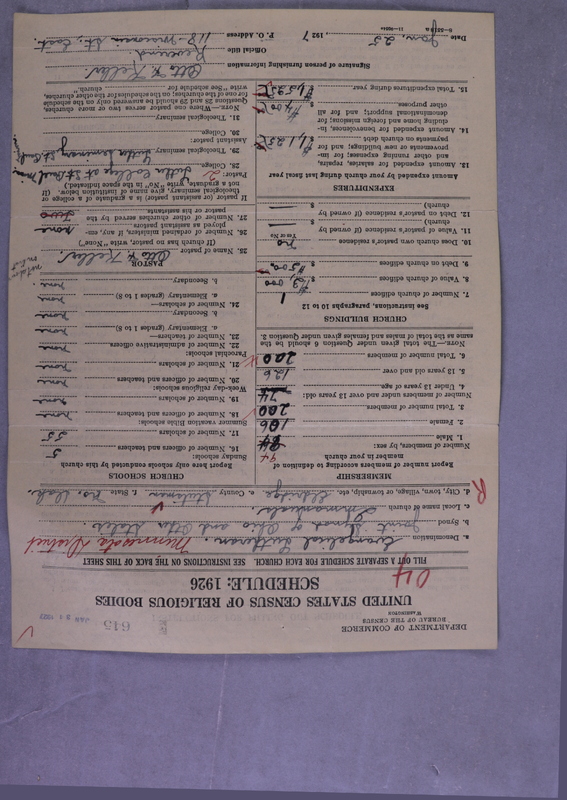 DEPARTMENT OF COMMERCE
BUREAU OF THE CENSUS
WASHINGTON
615
JAN 31 1927
UNITED STATES CENSUS OF RELIGIOUS BODIES
SCHEDULE: 1926
04
FILL OUT A SEPARATE SCHEDULE FOR EACH CHURCH. SEE INSTRUCTIONS ON THE BACK OF THIS SHEET
a. Denomination Evangelical Lutheran. Minnesota District
b. Synod Joint Synod of Ohio and Other States
c. Local name of church Immanuels
d. City, town, village, or township, etc. Eldridge e. County Stutsman f. State No. Dak.
R
MEMBERSHIP
Report number of members according to definition of
member in your church
Number of members, by sex:
1. Male 94
2. Female 106
3. Total number of members 200
Number of members under and over 13 years old:
4. Under 13 years of age 74
5. 13 years old and over 126
6. Total number of members 200
NOTE—The total given under Question 6 should be the
same as the total of males and females given under Question 3.
CHURCH BUILDINGS
See instructions, paragraphs 10 to 12
7. Number of church edifices 1
8. Value of church edifices
9. Debt on church edifices $ 500.
10. Does church own pastor's residence no
(Yes or No)
11. Value of pastor's residence (if owned by
church) $
12. Debt on pastor's residence (if owned by
church) $
EXPENDITURES
Amount expended by your church during last fiscal year
13. Amount expended for salaries, repairs,
and other running expenses; for im-
provements or new buildings; and for
payments on church debt $1,125
14. Amount expended for benevolences, in-
cluding home and foreign missions; for
denominational support; and for all
other purposes $400
15. Total expenditures during year $1,525
CHURCH SCHOOLS
Report here only schools conducted by this church
Sunday schools:
16. Number of officers and teachers 5
17. Number of scholars 55
Summer vacation Bible schools:
18. Number of officers and teachers none
19. Number of scholars none
Week-day religious schools:
20. Number of officers and teachers none
21. Number of scholars none
Parochial schools:
22. Number of administrative officers none
23. Number of teachers—
a. Elementary (grades 1 to 8) none
b. Secondary none
24. Number of scholars—
a. Elementary (grades 1 to 8) none
b. Secondary none
PASTOR
25. Name of pastor Otto F. Keller.
(If church has no pastor, write "None")
26. Number of ordained ministers, if any, em-
ployed as assistant pastor none
27. Number of other churches served by the
pastor or his assistants two
If pastor (or assistant pastor) is a graduate of a college or
theological seminary, give name of institution below. (If
not a graduate, write "No" in the space indicated.)
Pastor:
28. College Luther College at St. Paul Minn.
29. Theological seminary Luther Seminary St. Paul
Assistant pastor:
30. College
31. Theological seminary
NOTE.—Where one pastor serves two or more churches,
Questions 28 and 29 should be answered only on the schedule
for one of the churches; on the schedules for the other churches,
write "See schedule for church."
Signature of person furnishing information Otto F. Keller.
Official title Reverend
Date Jan. 25, 1927 P. O. Address 118-Wisconsin St., East.